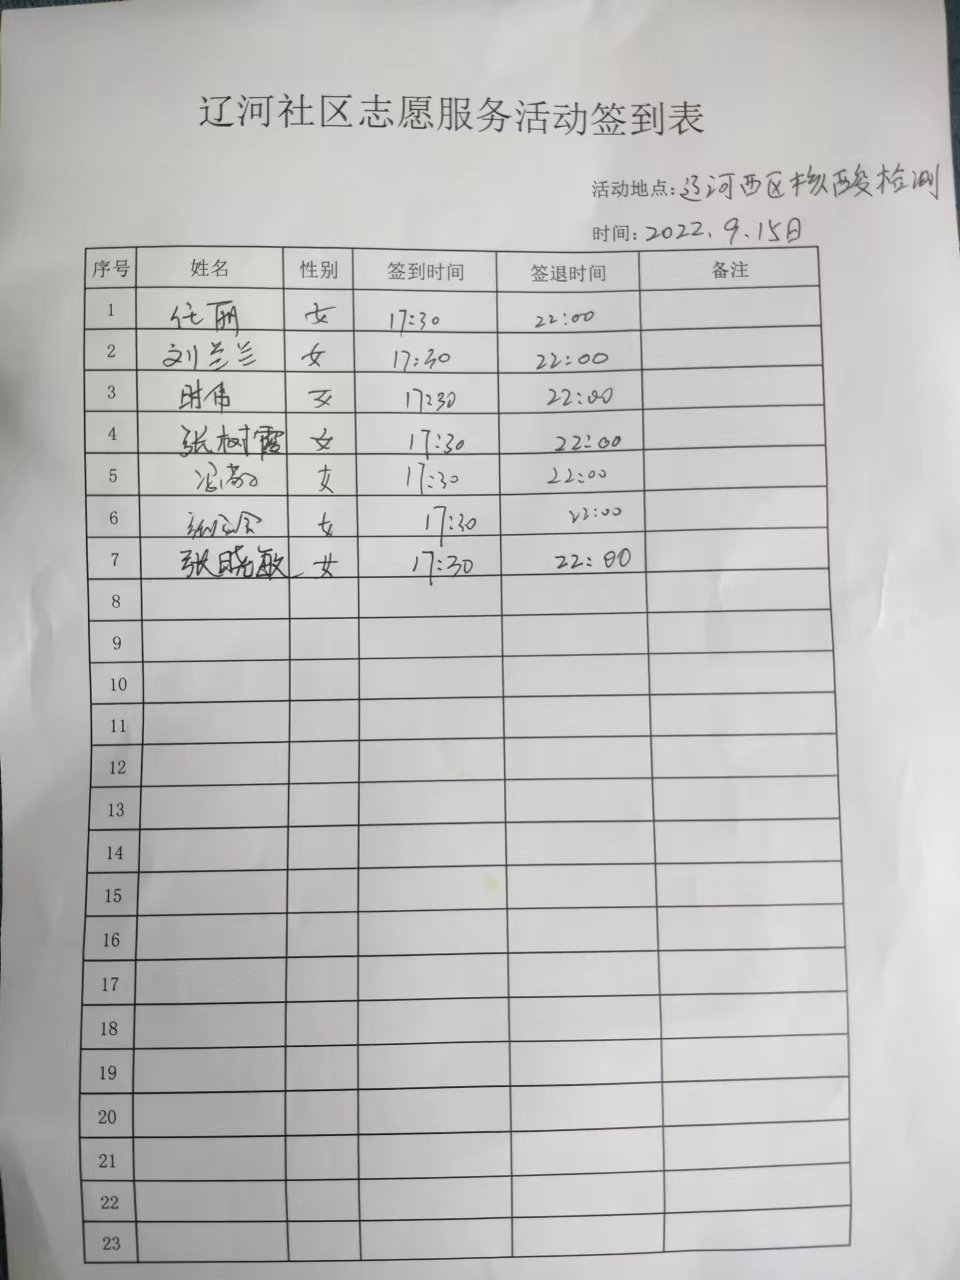 辽河社区志愿服务活动签到表
活动地点:辽河西区核酸检测
时间:2022.9.15日
序号 姓名 性别 签到时间 签退时间 备注
1 任丽 女 17:30 22:00
2 刘兰兰 女 17:30 22:00
3 时伟 女 17:30 22:00
4 张树霞 女 17:30 22:00
5 女 17:30 22:00
6 女 17:30 22:00
7 张晓敏 女 17:30 22:00
8
9
10
11
12
13
14
15
16
17
18
19
20
21
22
23